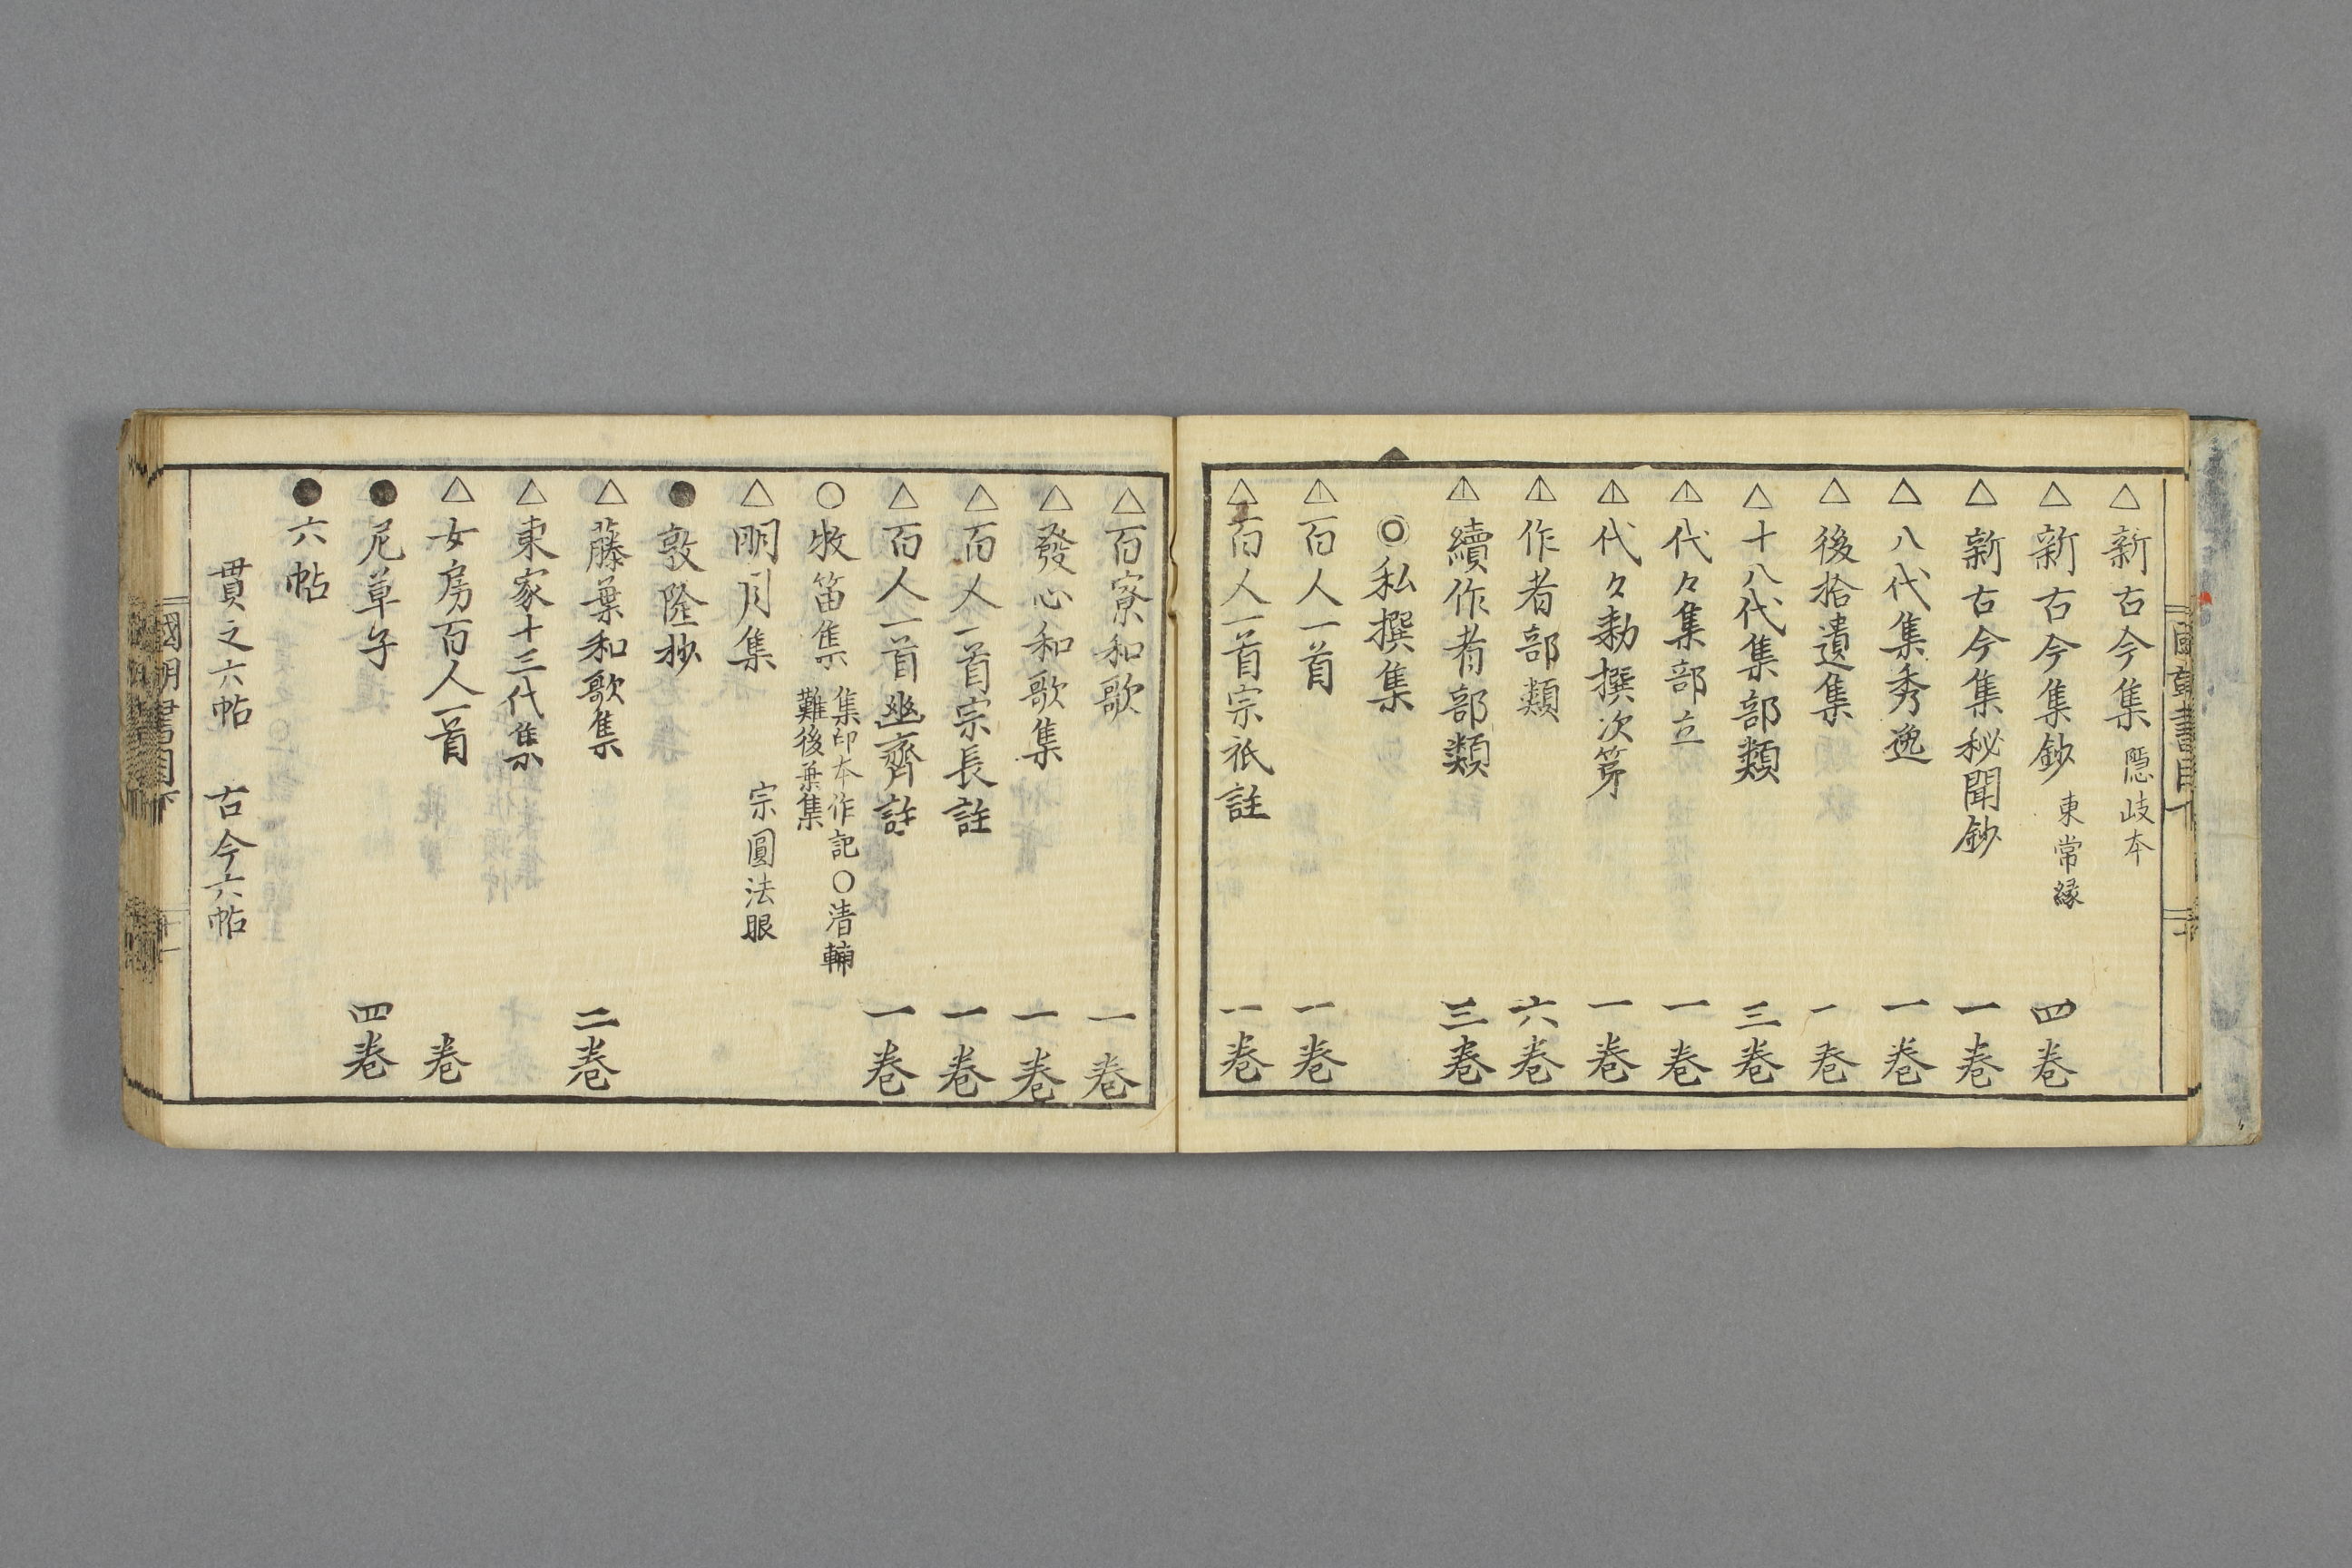 △新古今集 隠岐本
△新古今集鈔 東常縁 四巻
△新古今集秘聞鈔 一巻
△八代集秀逸 一巻
△後拾遺集 一巻
△十八代集部類 三巻
△代々集部立 一巻
△代々勅撰次第 一巻
△作者部類 六巻
△續作者部類 三巻
◎私撰集
△百人一首 一巻
△百人一首宗祇註 一巻
△百寮和歌 一巻
△發心和歌集 一巻
△百人一首宗長註 一巻
△百人一首幽齋註 一巻
○牧笛集 集印本作記○清輔
難後葉集
△明月集 宗圓法眼
●敦隆抄
△藤葉和歌集 二巻
△東家十三代集
△女房百人一首 巻
●尼草子 四巻
●六帖
貫之六帖 古今六帖
國朝書目下